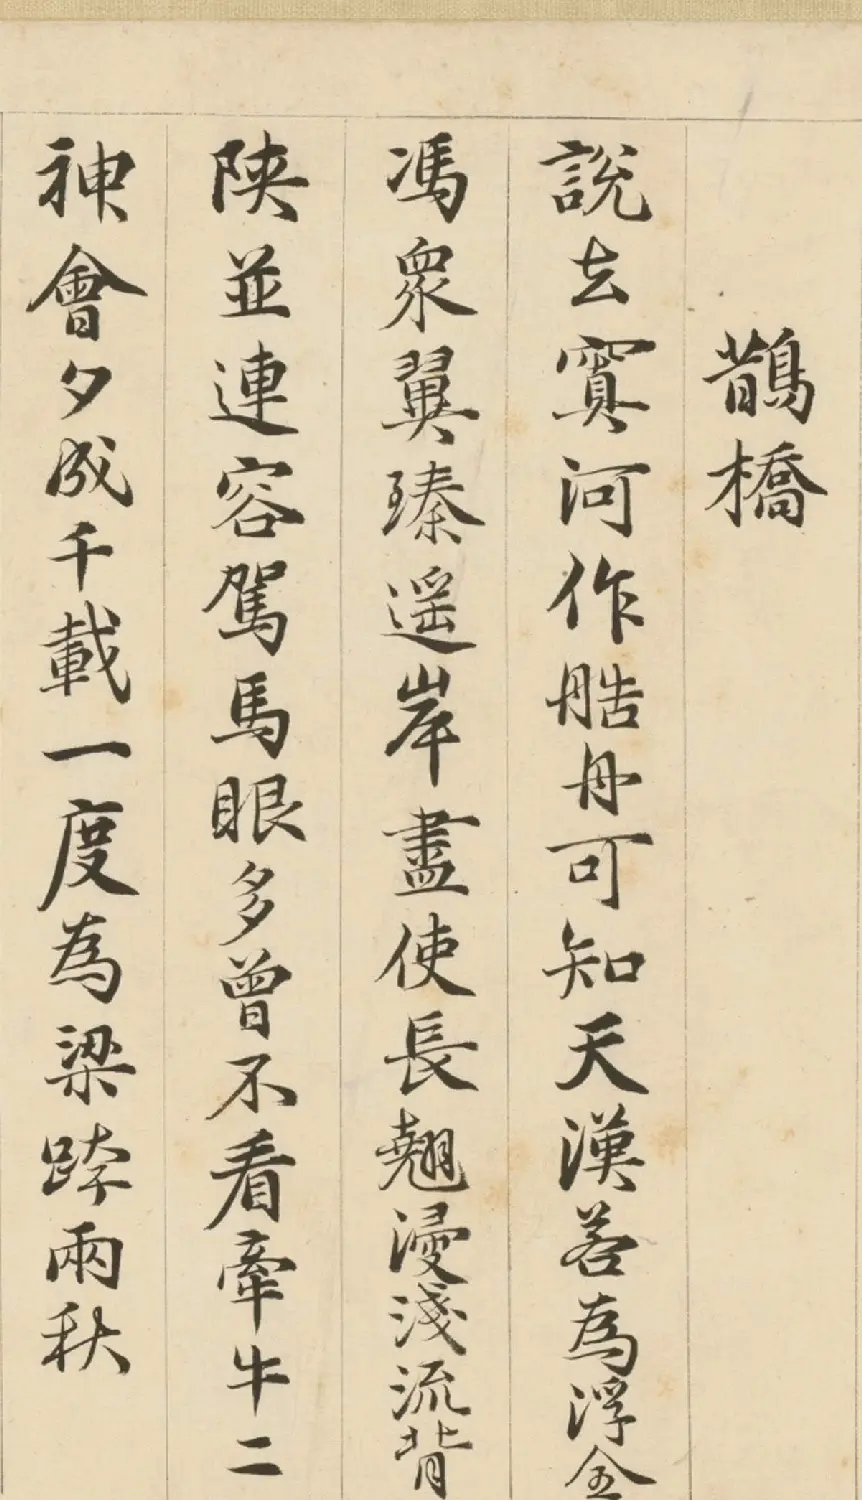 鵲橋
說玄實河作艁舟可知天漢若為浮全
馮衆翼臻遥岸盡使長翹浸淺流背
陝並連容駕馬眼多曾不看牽牛二
神會夕成千載一度為梁跨兩秋